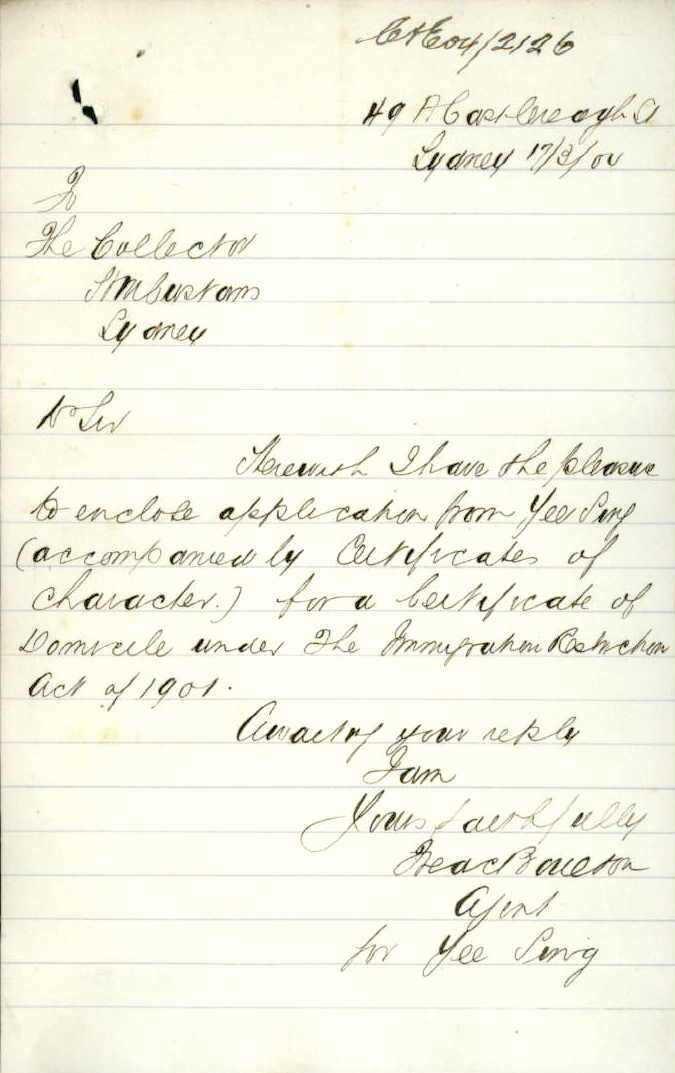 C&E04/2126
49 A Castlereagh St
Sydney 17/3/04
To
The Collector
H M Customs
Sydney
Dr Sir
Herewith I have the pleasure
to enclose application from Yee Sing
(accompanied by Certificates of
Character.) for a Certificate of
Domicile under the Immigration Restriction
Act of 1901.
Awaiting your reply
I am
Yours faithfully
Boulton
Agent
for Yee Sing